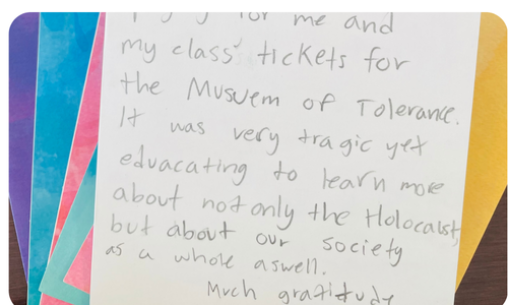 for me and
my class' tickets for
the Musuem of Tolerance.
It was very tragic yet
eduacating to learn more
about not only the Holocalst,
but about our society
as a whole aswell.
Much gratitude